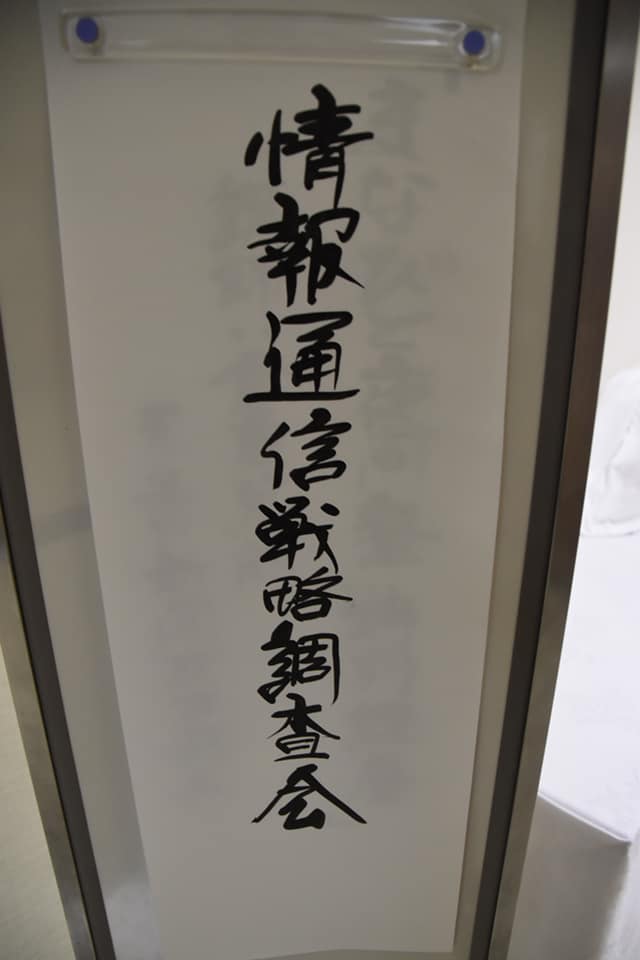 情報通信戦略調査会